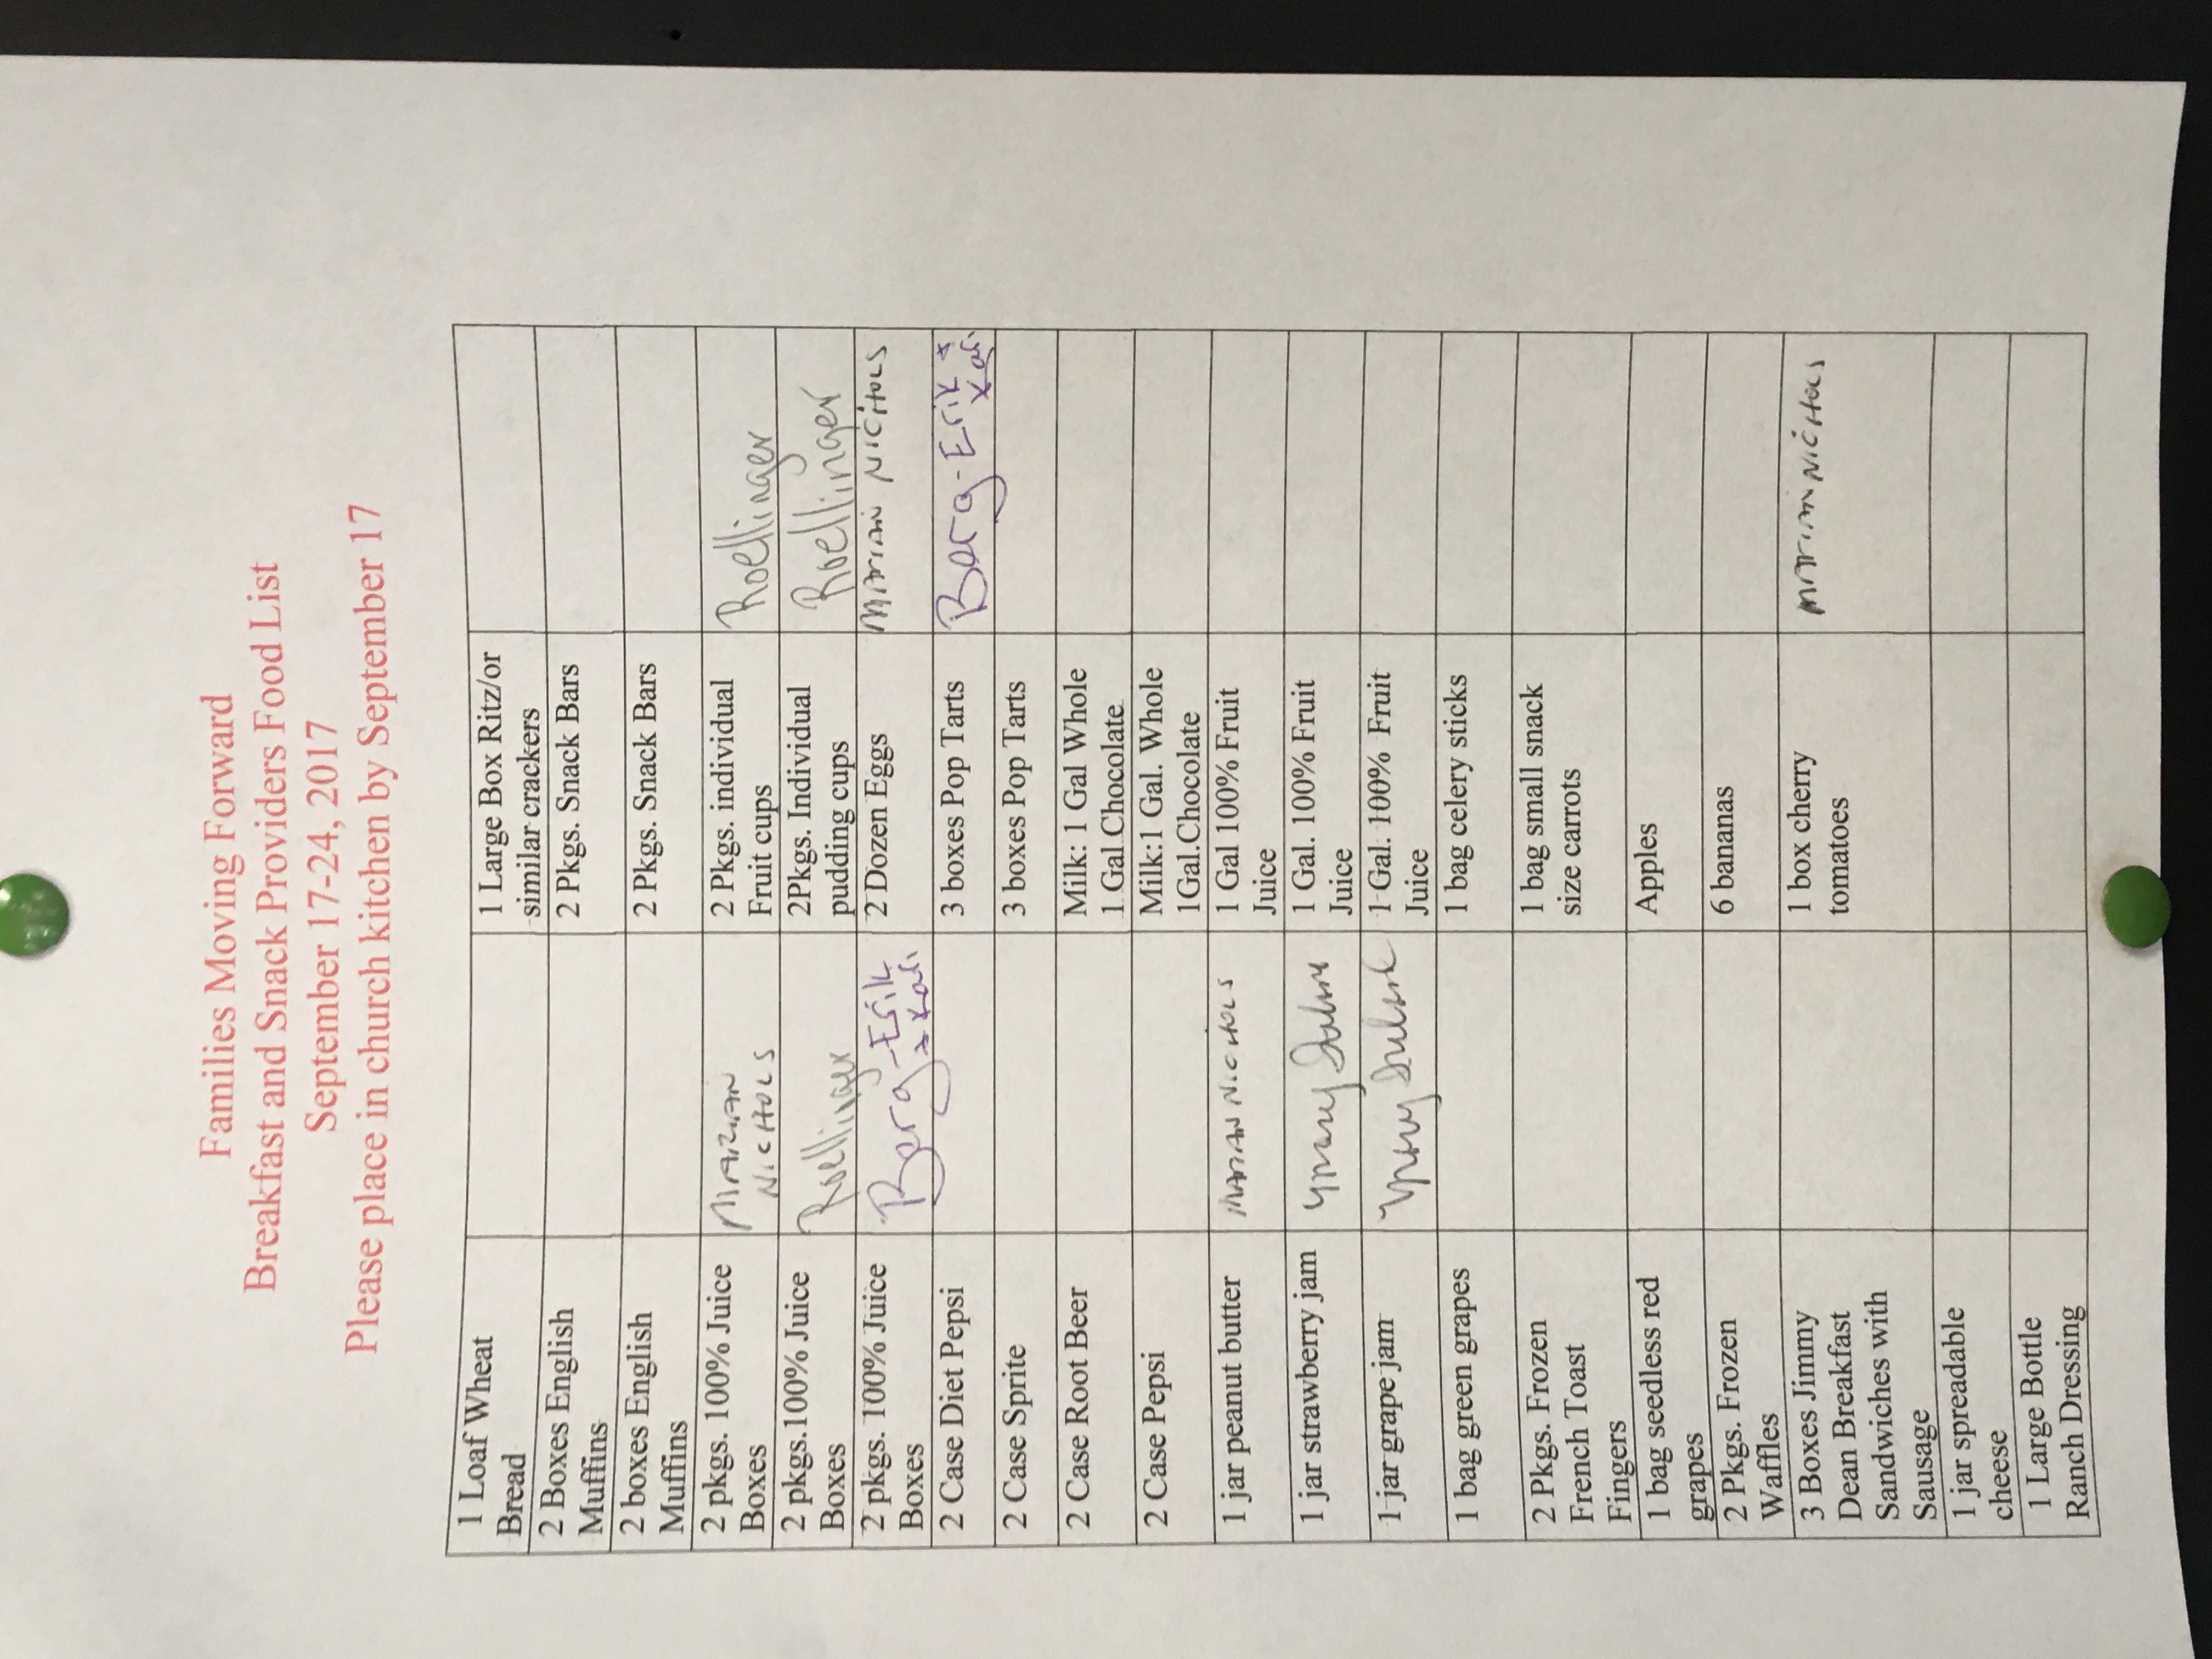 Families Moving Forward
Breakfast and Snack Providers Food List
September 17-24, 2017
Please place in church kitchen by September 17
1 Loaf Wheat
Bread
1 Large Box Ritz/or
similar crackers
2 Boxes English
Muffins
2 Pkgs. Snack Bars
2 boxes English
Muffins
2 Pkgs. Snack Bars
2 pkgs. 100% Juice
Boxes
MARIAN
NICHOLS
2 Pkgs. individual
Fruit cups
Roellinger
2 pkgs.100% Juice
Boxes
Roellinger
2Pkgs. Individual
pudding cups
Roellinger
2 pkgs. 100% Juice
Boxes
Berg-Erik
+ Kari
2 Dozen Eggs
MARIAN NICHOLS
2 Case Diet Pepsi
3 boxes Pop Tarts
Berg-Erik +
Kari
2 Case Sprite
3 boxes Pop Tarts
2 Case Root Beer
Milk: 1 Gal Whole
1 Gal Chocolate
2 Case Pepsi
Milk:1 Gal. Whole
1Gal.Chocolate
1 jar peanut butter
MARIAN NICHOLS
1 Gal 100% Fruit
Juice
1 jar strawberry jam
1 Gal. 100% Fruit
Juice
1 jar grape jam
1 Gal. 100% Fruit
Juice
1 bag green grapes
1 bag celery sticks
2 Pkgs. Frozen
French Toast
Fingers
1 bag small snack
size carrots
1 bag seedless red
grapes
Apples
2 Pkgs. Frozen
Waffles
6 bananas
3 Boxes Jimmy
Dean Breakfast
Sandwiches with
Sausage
1 box cherry
tomatoes
MARIAN NICHOLS
1 jar spreadable
cheese
1 Large Bottle
Ranch Dressing